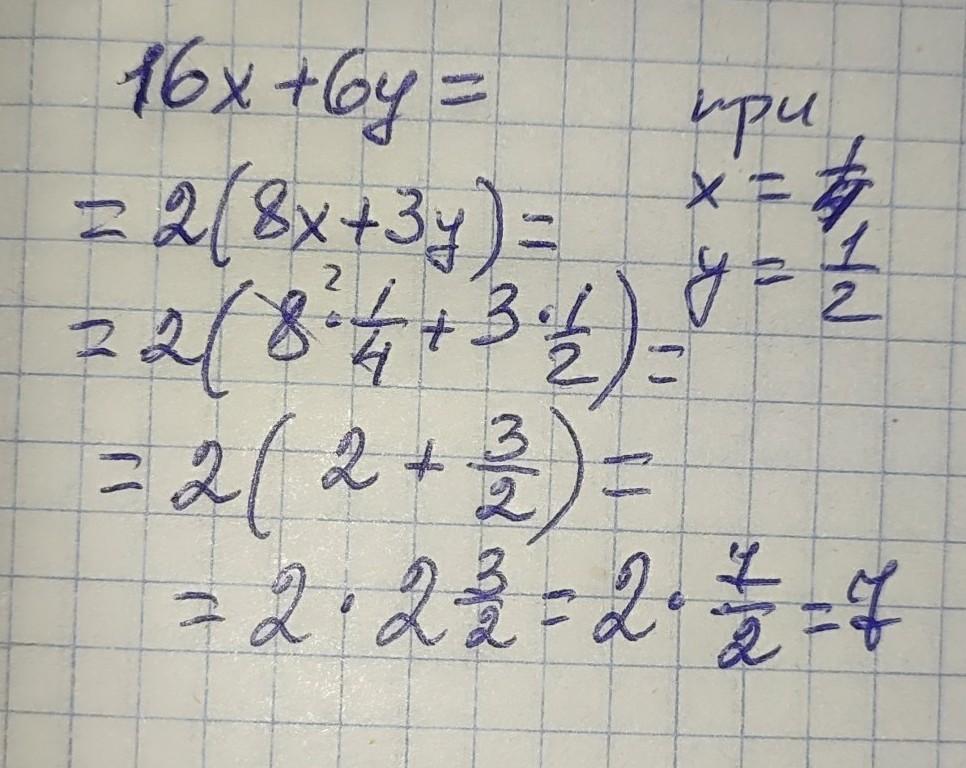 16x+6y=
при
x = 1/4
y = 1/2
= 2(8x+3y)=
= 2(8² · 1/4 + 3 · 1/2)=
= 2(2 + 3/2)=
= 2 · 2 3/2 = 2 · 7/2 = 7